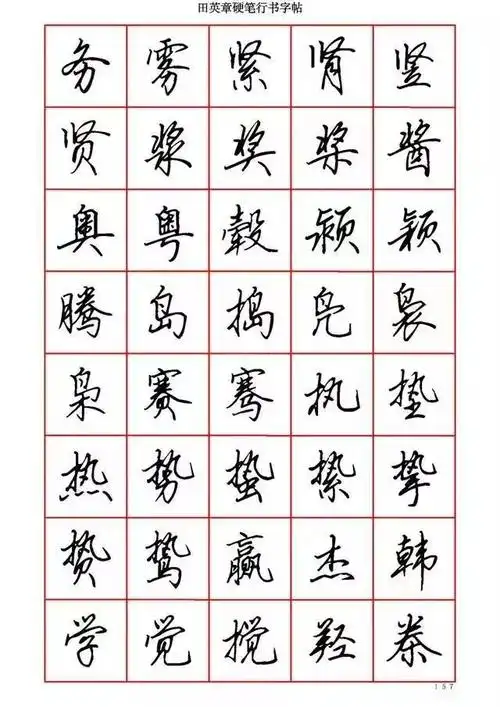 田英章硬笔行书字帖
务 雾 紧 肾 竖
贤 浆 奖 桨 酱
奥 粤 毂 颍 颖
腾 岛 捣 凫 袅
枭 赛 骞 执 垫
热 势 蛰 絷 挚
贽 鸷 赢 杰 韩
学 觉 搅 羟
157